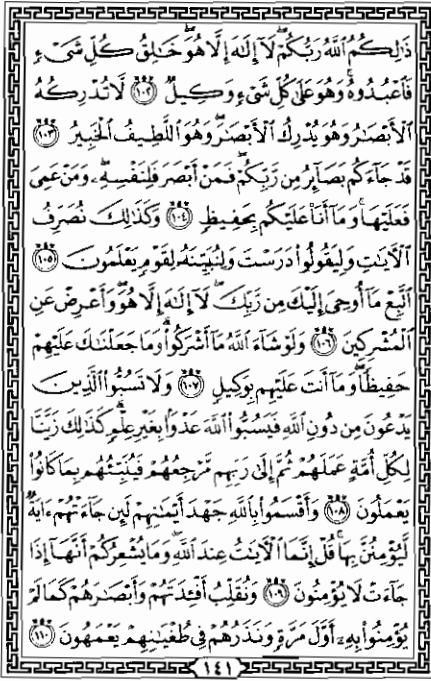 ذَٰلِكُمُ ٱللَّهُ رَبُّكُمْ ۖ لَآ إِلَٰهَ إِلَّا هُوَ ۖ خَٰلِقُ كُلِّ شَىْءٍ
فَٱعْبُدُوهُ ۚ وَهُوَ عَلَىٰ كُلِّ شَىْءٍ وَكِيلٌ ١٠٢ لَّا تُدْرِكُهُ
ٱلْأَبْصَٰرُ وَهُوَ يُدْرِكُ ٱلْأَبْصَٰرَ ۖ وَهُوَ ٱللَّطِيفُ ٱلْخَبِيرُ ١٠٣
قَدْ جَآءَكُم بَصَآئِرُ مِن رَّبِّكُمْ ۖ فَمَنْ أَبْصَرَ فَلِنَفْسِهِۦ ۖ وَمَنْ عَمِىَ
فَعَلَيْهَا ۚ وَمَآ أَنَا۠ عَلَيْكُم بِحَفِيظٍ ١٠٤ وَكَذَٰلِكَ نُصَرِّفُ
ٱلْءَايَٰتِ وَلِيَقُولُوا۟ دَرَسْتَ وَلِنُبَيِّنَهُۥ لِقَوْمٍ يَعْلَمُونَ ١٠٥
ٱتَّبِعْ مَآ أُوحِىَ إِلَيْكَ مِن رَّبِّكَ ۖ لَآ إِلَٰهَ إِلَّا هُوَ ۖ وَأَعْرِضْ عَنِ
ٱلْمُشْرِكِينَ ١٠٦ وَلَوْ شَآءَ ٱللَّهُ مَآ أَشْرَكُوا۟ ۗ وَمَا جَعَلْنَٰكَ عَلَيْهِمْ
حَفِيظًا ۖ وَمَآ أَنتَ عَلَيْهِم بِوَكِيلٍ ١٠٧ وَلَا تَسُبُّوا۟ ٱلَّذِينَ
يَدْعُونَ مِن دُونِ ٱللَّهِ فَيَسُبُّوا۟ ٱللَّهَ عَدْوًۢا بِغَيْرِ عِلْمٍ ۗ كَذَٰلِكَ زَيَّنَّا
لِكُلِّ أُمَّةٍ عَمَلَهُمْ ثُمَّ إِلَىٰ رَبِّهِم مَّرْجِعُهُمْ فَيُنَبِّئُهُم بِمَا كَانُوا۟
يَعْمَلُونَ ١٠٨ وَأَقْسَمُوا۟ بِٱللَّهِ جَهْدَ أَيْمَٰنِهِمْ لَئِن جَآءَتْهُمْ ءَايَةٌ
لَّيُؤْمِنُنَّ بِهَا ۚ قُلْ إِنَّمَا ٱلْءَايَٰتُ عِندَ ٱللَّهِ ۖ وَمَا يُشْعِرُكُمْ أَنَّهَآ إِذَا
جَآءَتْ لَا يُؤْمِنُونَ ١٠٩ وَنُقَلِّبُ أَفْـِٔدَتَهُمْ وَأَبْصَٰرَهُمْ كَمَا لَمْ
يُؤْمِنُوا۟ بِهِۦٓ أَوَّلَ مَرَّةٍ وَنَذَرُهُمْ فِى طُغْيَٰنِهِمْ يَعْمَهُونَ ١١٠
١٤١